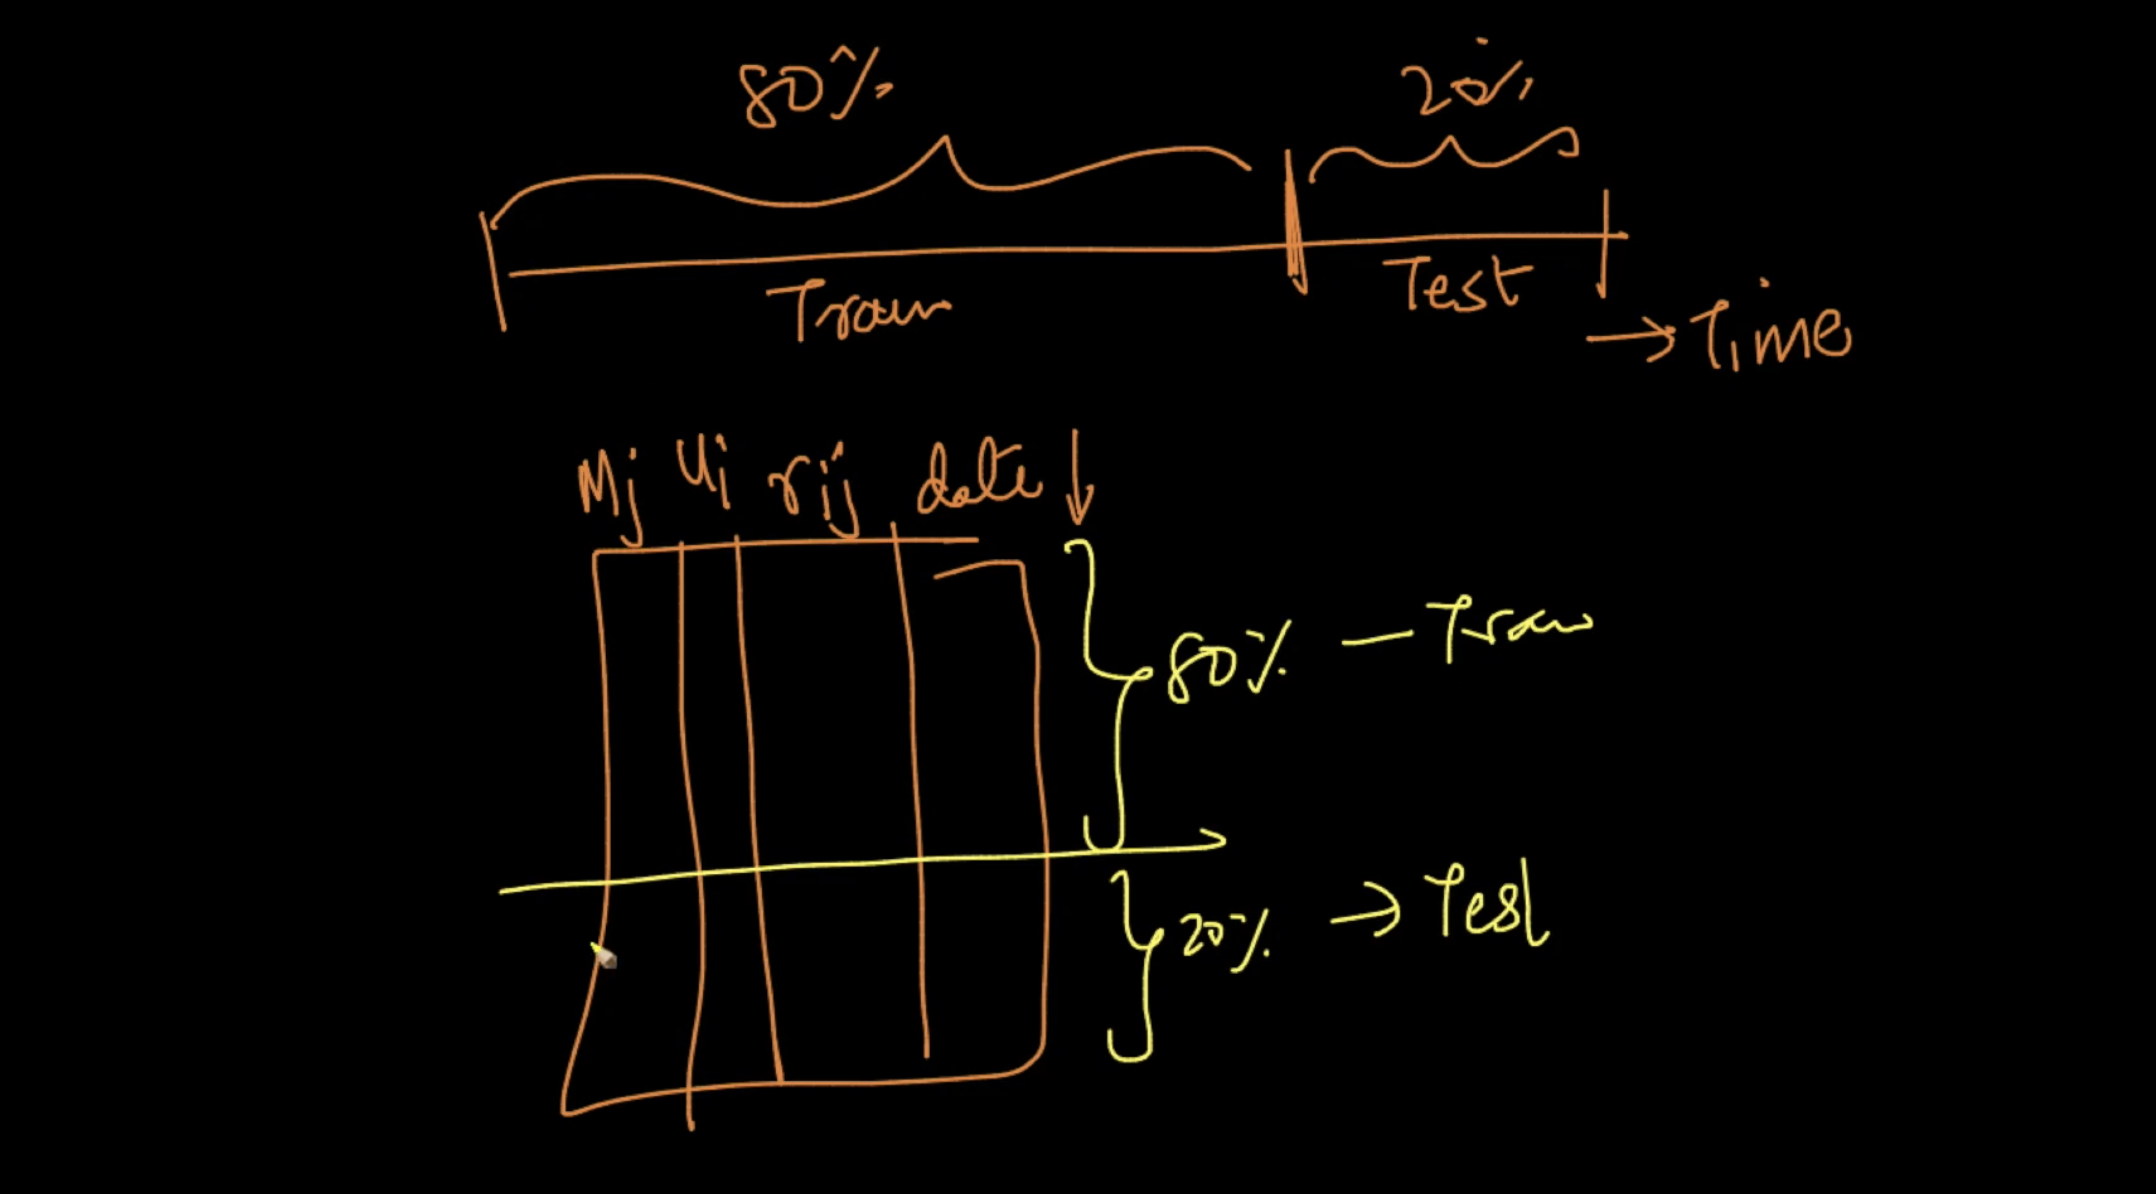 80% 20%
Train Test
→ Time
Mj Ui rij date ↓
80% — Train
20% → Test